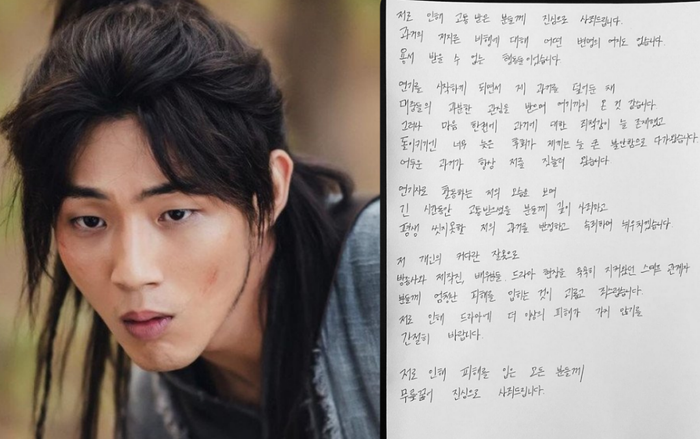 저로 인해 고통 받은 분들께 진심으로 사죄드립니다.
과거에 저지른 비행에 대해 어떤 변명의 여지도 없습니다.
용서 받을 수 없는 행동들이었습니다.
연기를 시작하게 되면서 제 과거를 덮어둔 채
대중들의 과분한 관심을 받으며 여기까지 온 것 같습니다.
그러나 마음 한켠에 과거에 대한 죄책감이 늘 존재했고
돌이키기엔 너무 늦은 후회가 저에게는 늘 큰 불안함으로 다가왔습니다.
어두운 과거가 항상 저를 짓눌러 왔습니다.
연기자로 활동하는 저의 모습을 보며
긴 시간동안 고통받으셨을 분들께 깊이 사죄하고
평생 씻지못할 저의 과거를 반성하고 속죄하며 뉘우치겠습니다.
저 개인의 커다란 잘못으로
방송사와 제작진, 배우들, 드라마 현장을 묵묵히 지켜왔던 스태프 관계자
분들께 엄청난 피해를 입히는 것이 괴롭고 죄스럽습니다.
저로 인해 드라마에 더 이상의 피해가 가지 않기를
간절히 바랍니다.
저로 인해 피해를 입은 모든 분들께
무릎꿇어 진심으로 사죄드립니다.